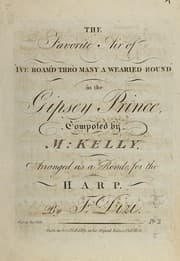 THE
Favorite Air of
I'VE ROAM'D THRO MANY A WEARIED ROUND
in the
Gipsey Prince,
Composed by
Mr. KELLY,
Arranged as a Rondo, for the
HARP.
By F. Dizi.